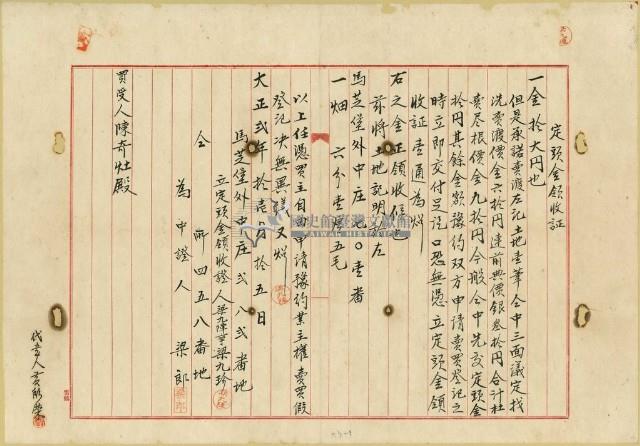 定頭金領收証
一金拾大円也
但是承諾賣渡左記土地壹筆仝中三面議定找
洗賣渡價金六拾円連前典價銀叁拾円合計杜
賣尽根價金九拾円今般仝中先交定頭金
拾円其餘金額豫約双方申請賣買登記之
時立即交付足訖口恐無憑立定頭金領
收証壹通為炤
右之金正領收候也
茲將土地記明於左
馬芝堡外中庄七〇壹番
一畑 六分壹厘五毛
以上任憑買主自由申請豫約業主權賣買假
登記決無異議又炤
大正弍年拾壱月拾五日
馬芝堡外中庄弍八弍番地
立定頭金領收證人 梁九 梁九珍
仝所四五八番地
為中證人 梁郎
買受人陳奇灶殿
代書人
國史館臺灣文獻館
TAIWAN HISTORICA